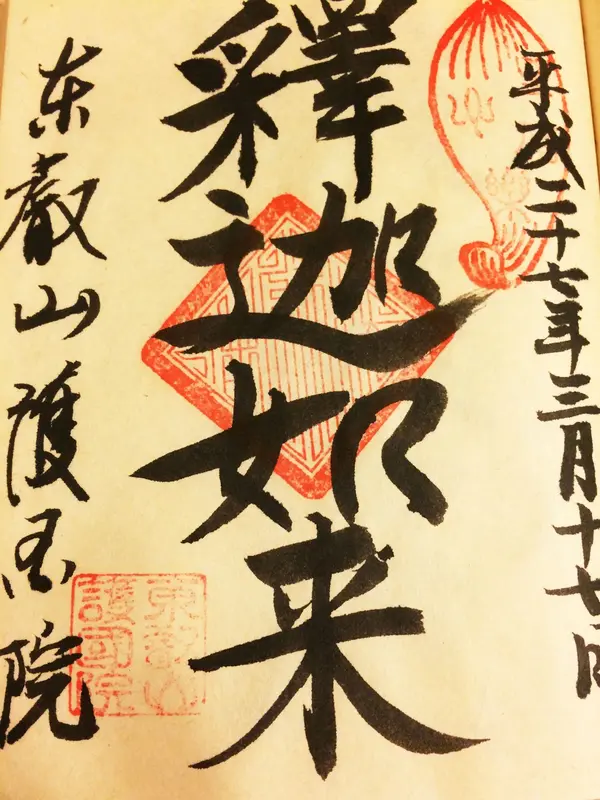 平成二十七年三月十七日
釋迦如来
东叡山護国院
東叡山
護國院